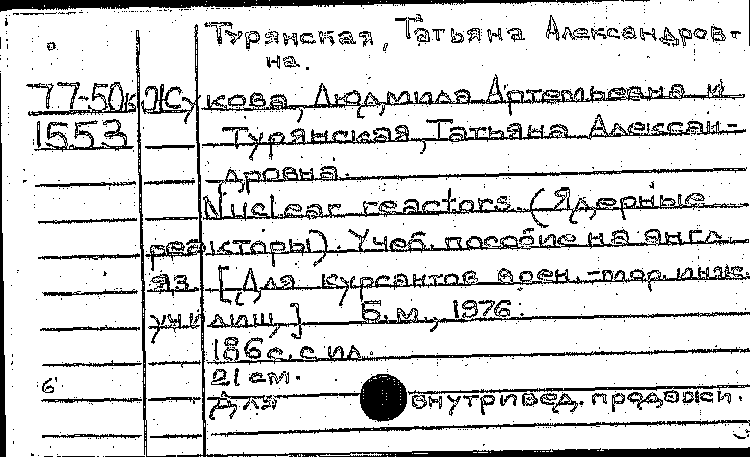 Турянская, Татьяна Александров-
на.
77-50к Жукова, Людмила Артемьевна и
1553 Турянская, Татьяна Алексан-
дровна.
Nuclear reactors. (Ядерные
реакторы). Учеб. пособие на англ.
яз. [Для курсантов воен.-мор. инж.
училищ,] Б.м., 1976.
186 с. с ил.
21 см.
6
Для внутривед. продажи.